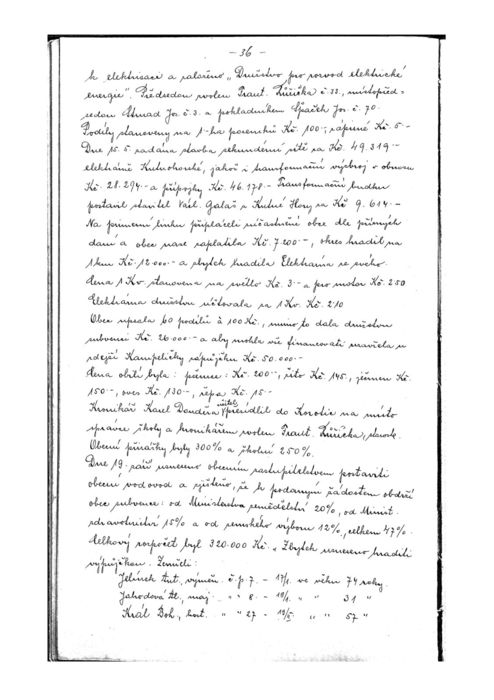 - 36 -
k elektrisaci a založeno „Družstvo pro rozvod elektrické
energie". Předsedou zvolen Frant. Růžička č. 32., místopřed-
sedou Strnad Jos. č. 3. a pokladníkem Špaček Jos. č. 70.
Podíly stanoveny na 1-ha pozemků Kč. 100·-, zápisné Kč. 5·-
Dne 15. 5. zadána stavba sekundérní sítě za Kč. 49.319·-
elektrárně Kutnohorské, jakož i transformační výzbroj v obnosu
Kč. 28.294·- a přípojky Kč. 46.178·- Transformační budku
postavil stavitel Váš. Galaš z Kutné Hory za Kč 9.614·-
Na primerní linku připlácely súčastněné obce dle přímých
daní a obec naše zaplatila Kč. 7.200·-, okres hradil na
1 km Kč. 12.000·- a zbytek hradila Elektrárna ze svého.
Cena 1 Kv. stanovena na světlo Kč. 3·- a pro motor Kč. 2.50
Elektrárna družstvu účtovala za 1 Kv. Kč. 2.10
Obec upsala 60 podílů à 100 Kč., mimo to dala družstvu
subvenci Kč. 26.000·- a aby mohla vše financovati uzavřela u
zdejší Kampeličky zápůjčku Kč. 50.000·-
Cena obilí byla: pšenice: Kč. 200·-, žito Kč. 145, ječmen Kč.
150·-, oves Kč. 130·-, řepa Kč. 15·-
Kronikář Karel Douděra učitel, přesídlil do Korotic na místo
správce školy a kronikářem zvolen Frant. Růžička,
Obecní přirážky byly 300% a školní 250%.
Dne 19. září usneseno obecním zastupitelstvem postaviti
obecní vodovod a zjištěno, že k podaným žádostem obdrží
obec subvence: od Ministerstva zemědělství 20%, od Minist.
zdravotnictví 15% a od zemského výboru 12%, celkem 47%.
Celkový rozpočet byl 320.000 Kč. Zbytek usneseno hraditi
výpůjčkou. Zemřeli:
Jelínek Ant., výměn. č. p. 7. - 17/1. ve věku 74 roky.
Jahodová Al., maj. „ „ 8. - 19/1. „ „ 31 „
Král Boh., host. „ „ 27 - „ „ 57 „